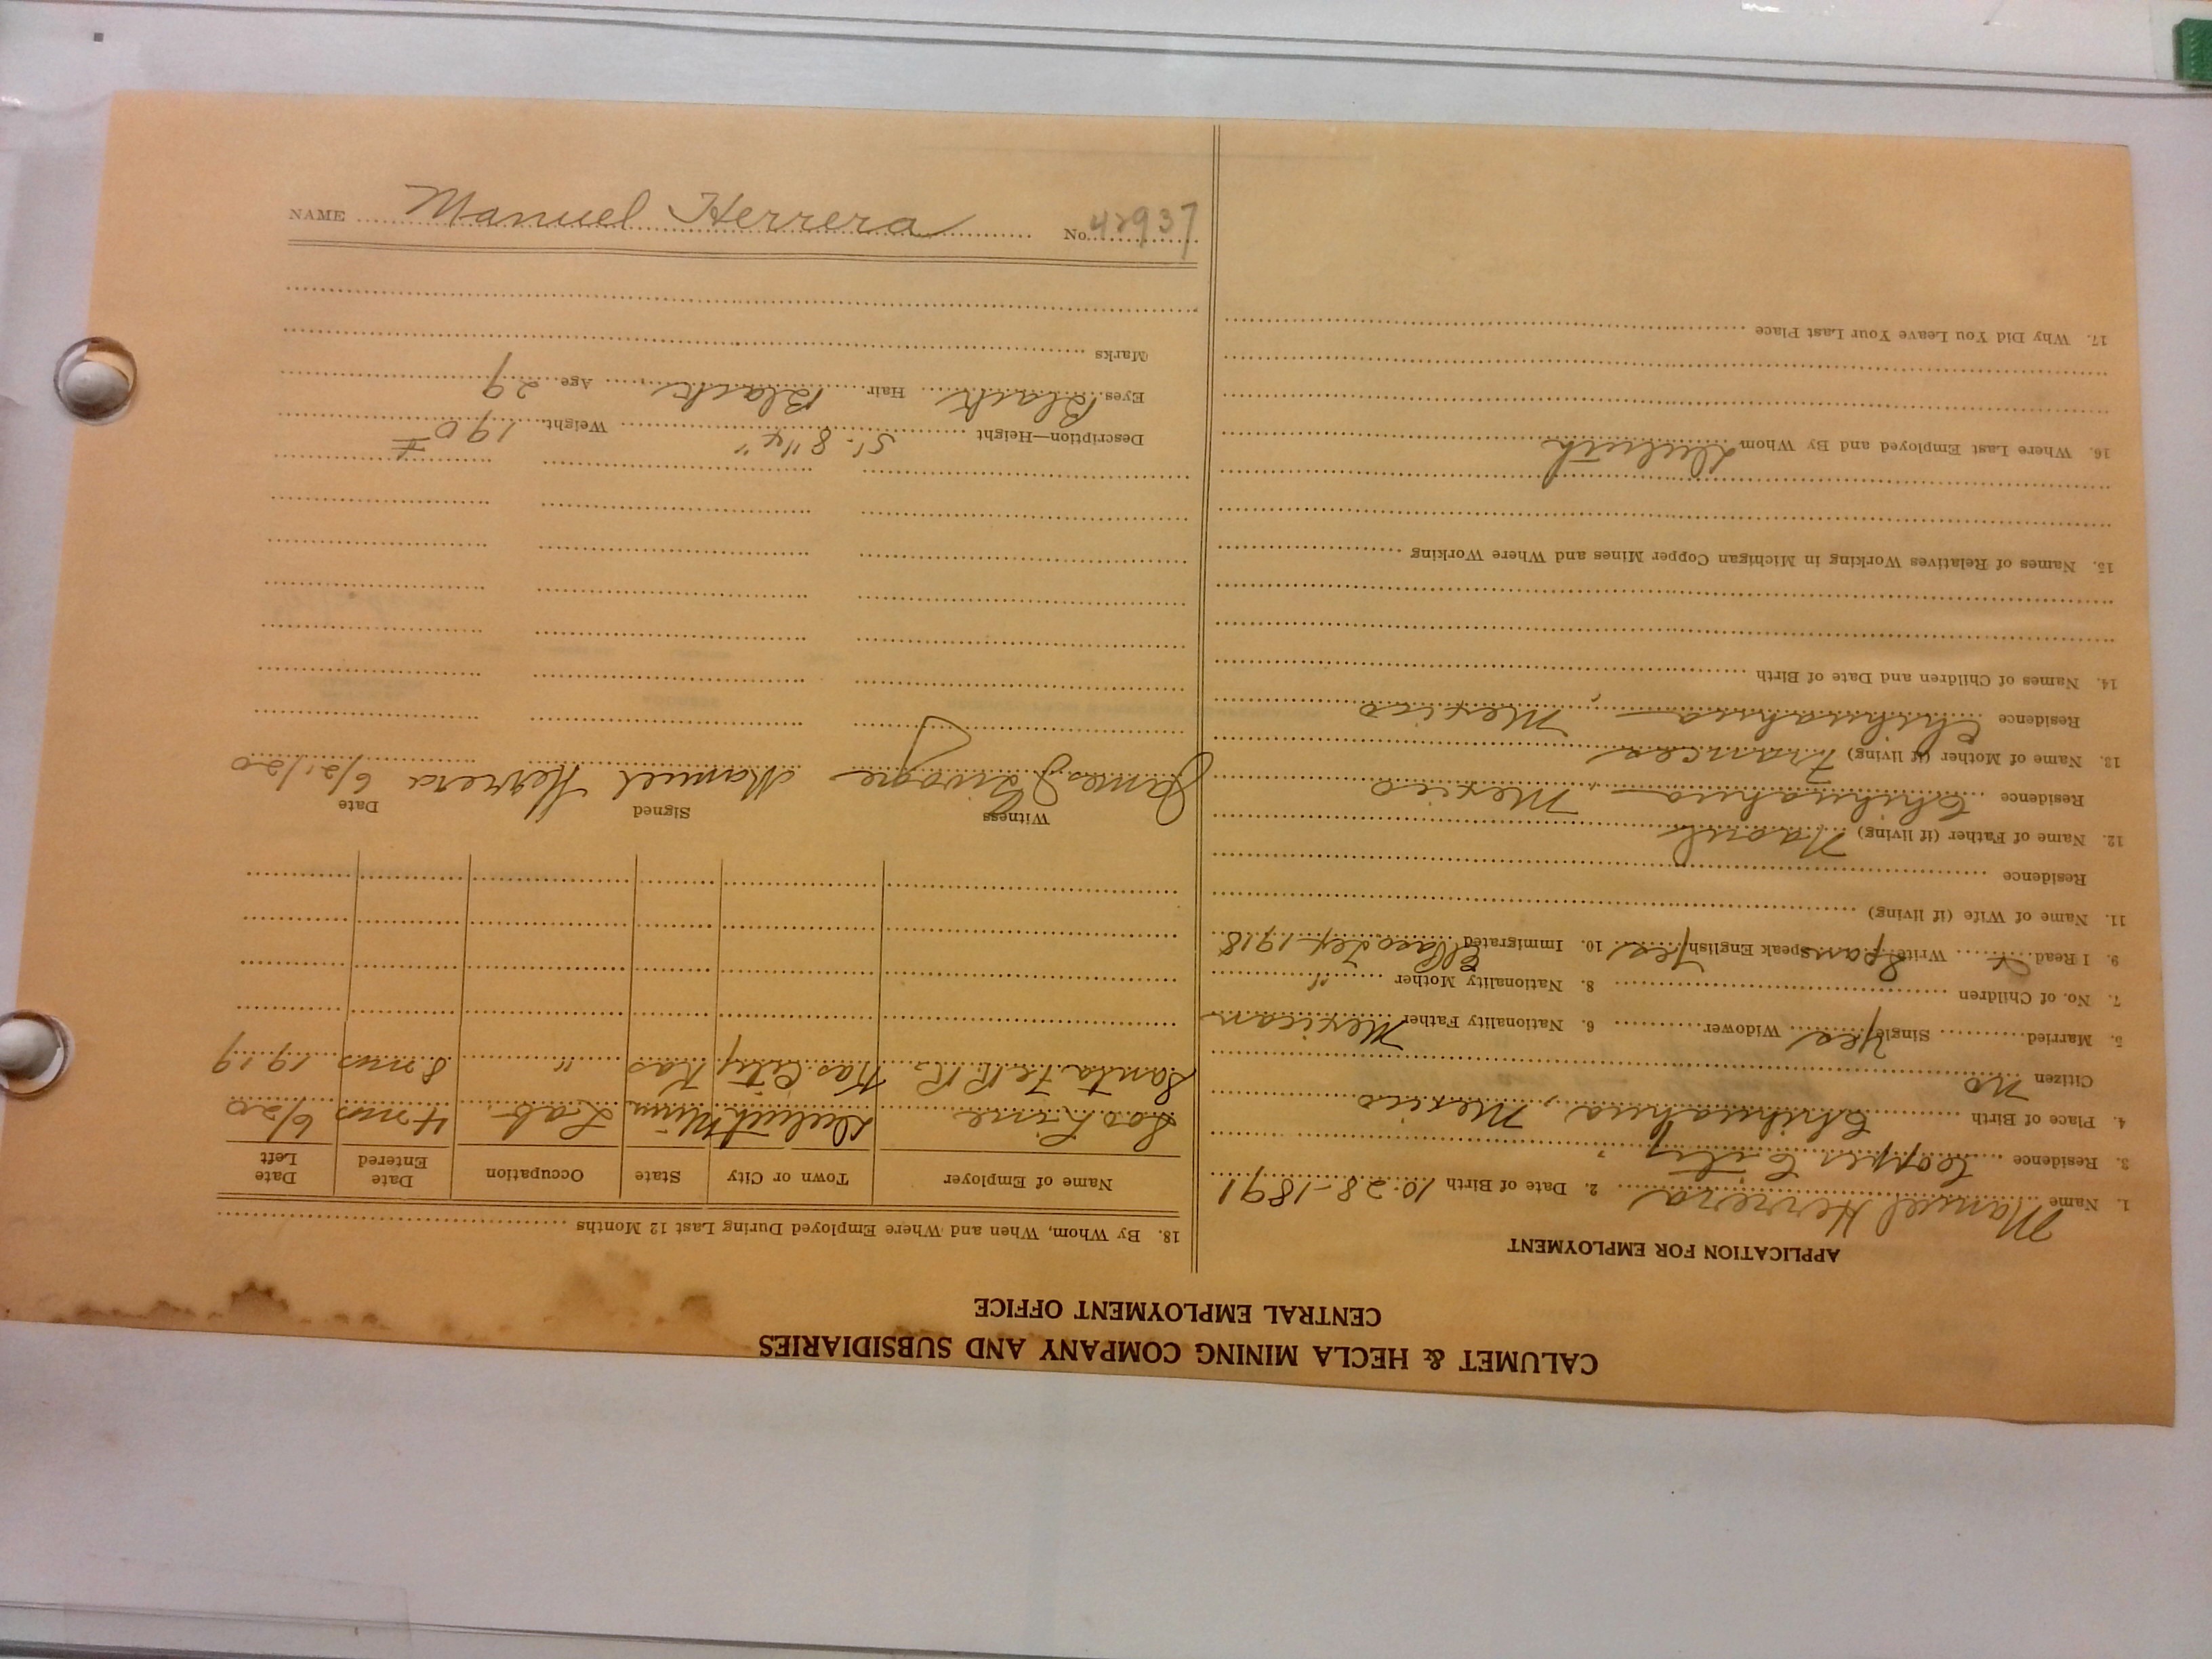 CALUMET & HECLA MINING COMPANY AND SUBSIDIARIES
CENTRAL EMPLOYMENT OFFICE
APPLICATION FOR EMPLOYMENT
1. Name Manuel Herrera 2. Date of Birth 10-28-1891
3. Residence Copper City
4. Place of Birth Chihuahua, Mexico
Citizen no
5. Married Single Yes Widower 6. Nationality Father Mexican
7. No. of Children 8. Nationality Mother "
9. I Read Write Span Speak English Yes 10. Immigrated El Paso Tex 1918
11. Name of Wife (if living)
Residence
12. Name of Father (if living)
Residence Chihuahua, Mexico
13. Name of Mother (if living) Frances
Residence Chihuahua, Mexico
14. Names of Children and Date of Birth
15. Names of Relatives Working in Michigan Copper Mines and Where Working
16. Where Last Employed and By Whom Duluth
17. Why Did You Leave Your Last Place
18. By Whom, When and Where Employed During Last 12 Months
Name of Employer Town or City State Occupation Date Entered Date Left
Soo Line Duluth Minn Lab. 4 mos 6/20
Santa Fe R.R. Kas. City Kas " 8 mos 1919
Witness Signed Date
James Manuel Herrera 6/21/20
Description—Height 5'-8 1/4" Weight 190 #
Eyes Black Hair Black Age 29
Marks
NAME Manuel Herrera No. 42937